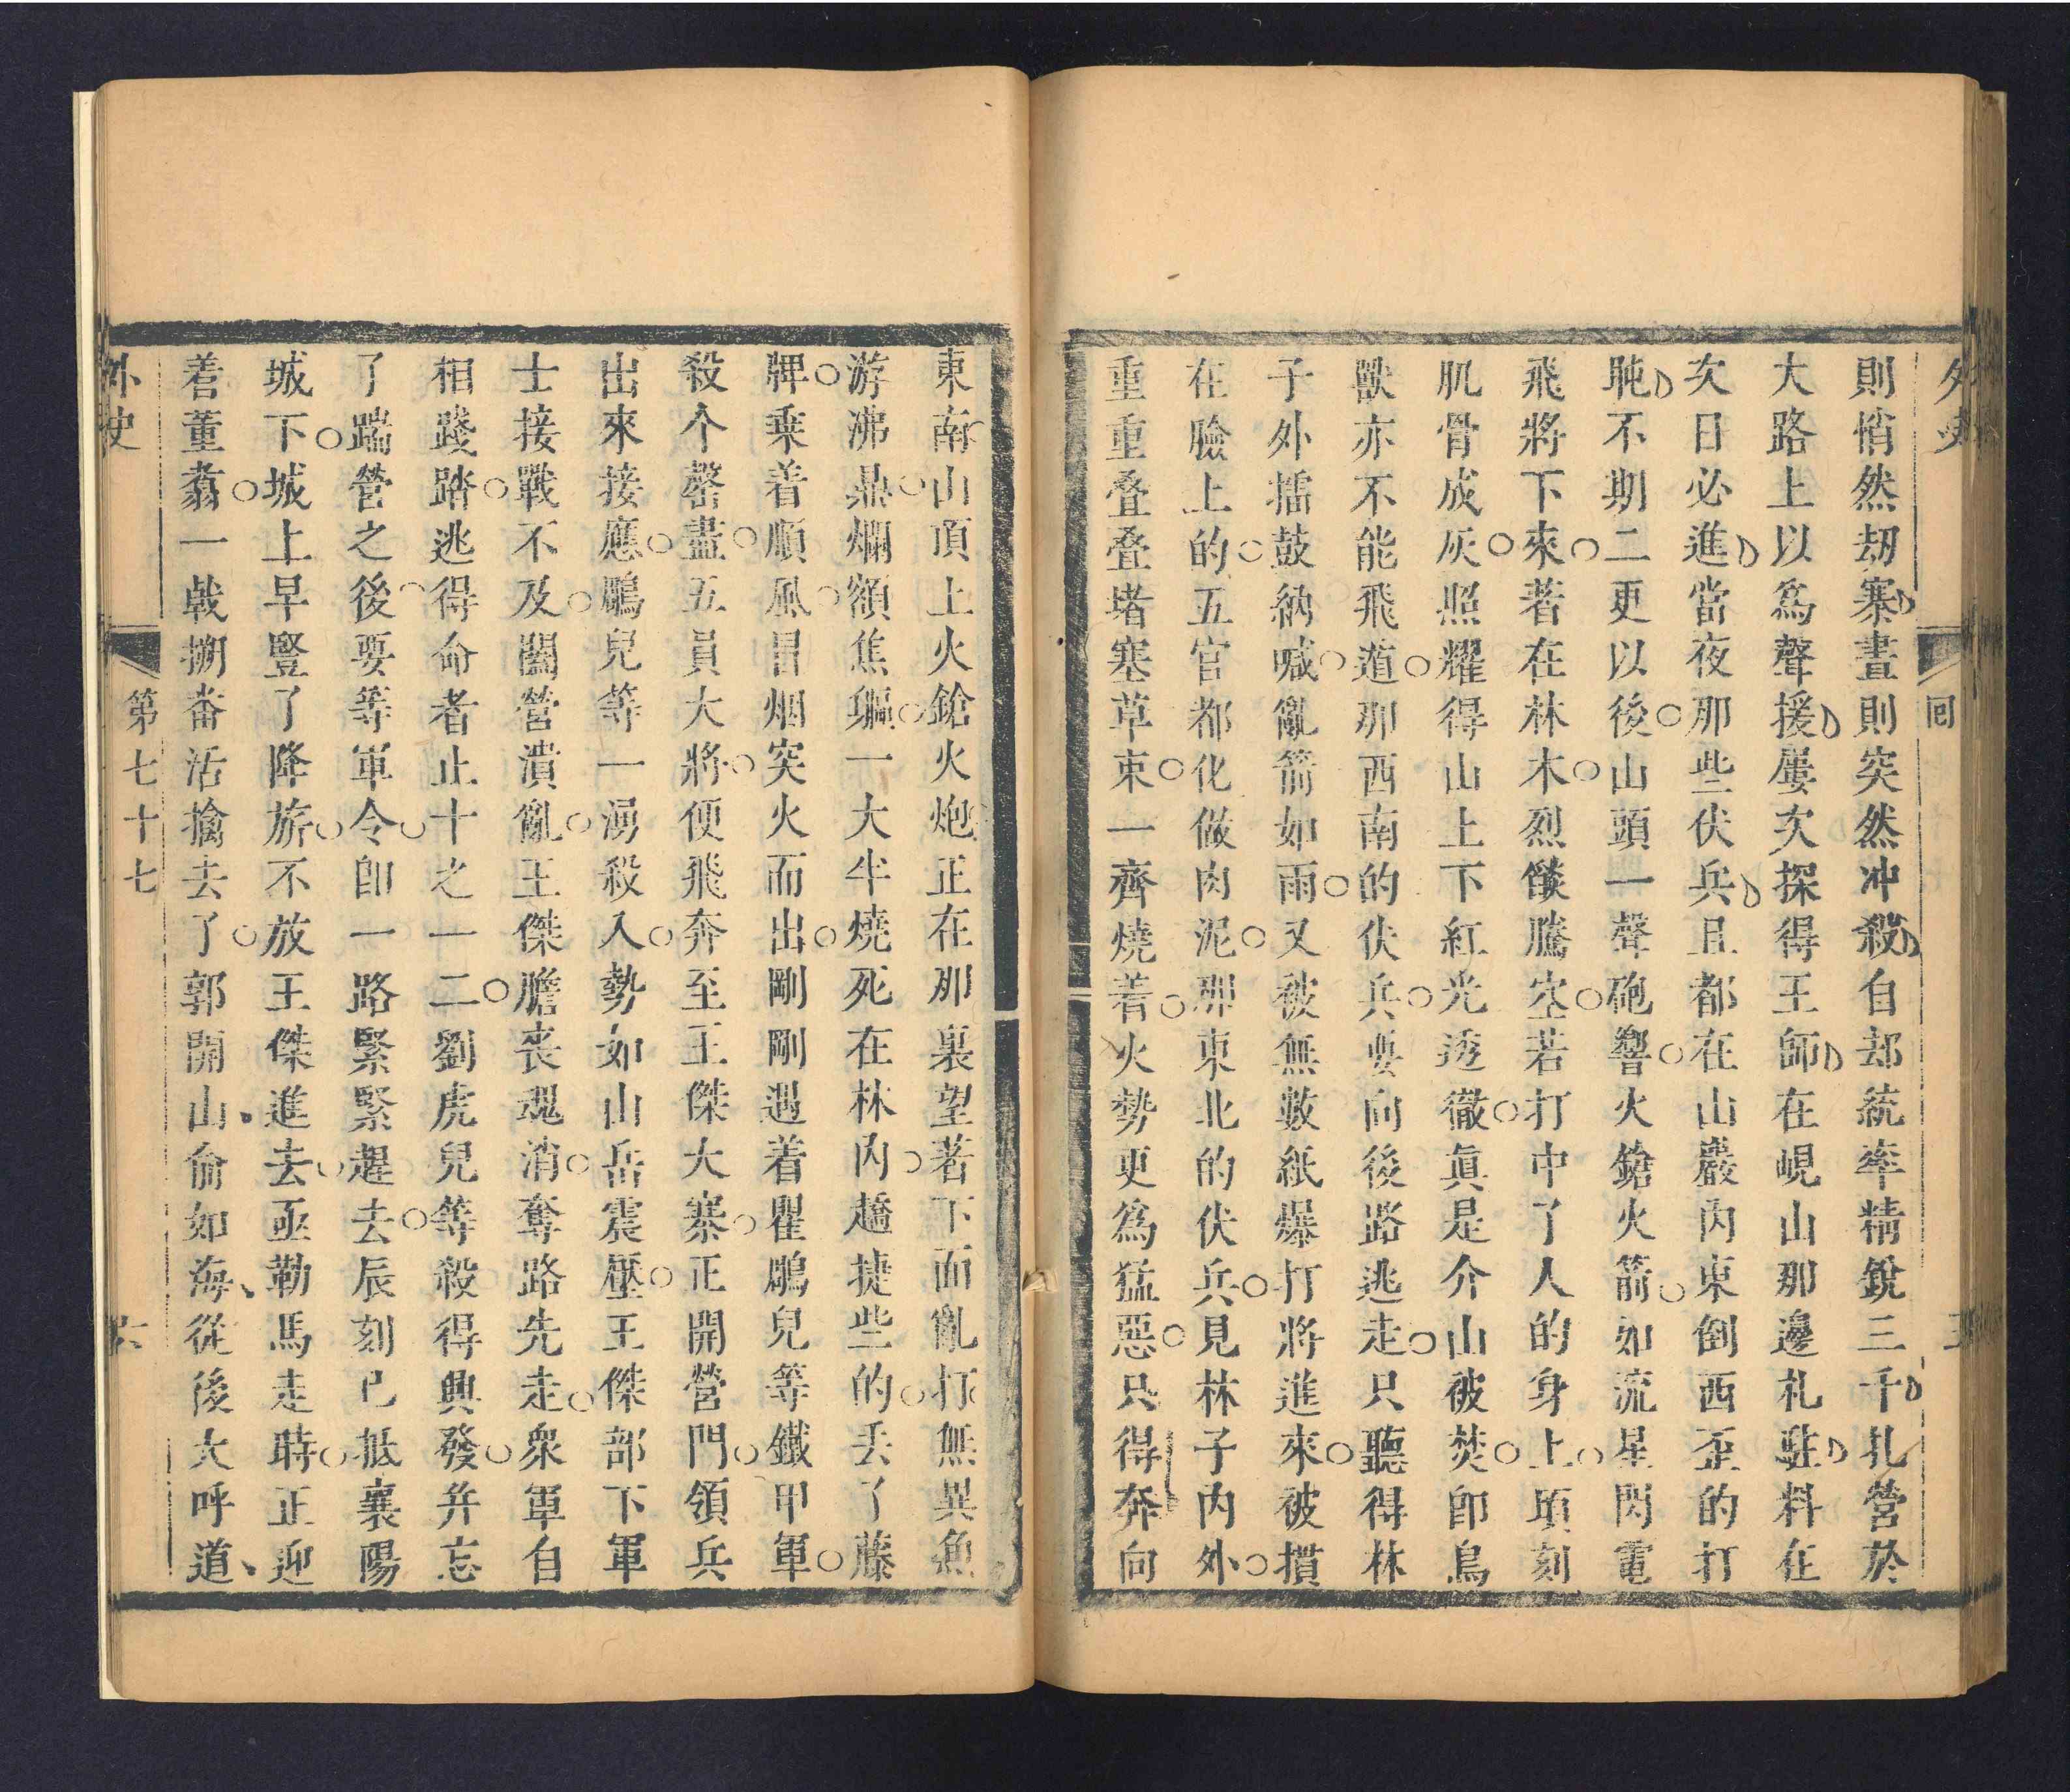 外史
回
則悄然刼寨晝則突然冲殺自却統率精銳三千扎營於
大路上以爲聲援屡次探得王師在峴山那邊札駐料在
次日必進當夜那些伏兵且都在山巖內東倒西歪的打
盹不期二更以後山頭一聲砲響火鎗火箭如流星閃電
飛將下來著在林木烈燄騰空若打中了人的身上頃刻
肌骨成灰照耀得山上下紅光透徹眞是介山被焚卽鳥
獸亦不能飛遁那西南的伏兵要向後路逃走只聽得林
子外擂鼓納喊亂箭如雨又被無數紙爆打將進來被摜
在臉上的五官都化做肉泥那東北的伏兵見林子內外
重重叠叠堵塞草束一齊燒着火勢更爲猛惡只得奔向
東南山頂上火鎗火炮正在那裏望著下面亂打無異魚
游沸鼎爛額焦頭一大半燒死在林內趫捷些的丢了藤
牌乘着順風冒烟突火而出剛剛遇着瞿鵰兒等鐵甲軍
殺个罄盡五員大將便飛奔至王傑大寨正開營門領兵
出來接應鵰兒等一湧殺入勢如山岳震壓王傑部下軍
士接戰不及闔營潰亂王傑膽喪魂消奪路先走衆軍自
相踐踏逃得命者止十之一二劉虎兒等殺得興發并忘
了踹營之後要等軍令卽一路緊緊趕去辰刻已抵襄陽
城下城上早豎了降旂不放王傑進去亟勒馬走時正迎
着董翥一戟搠番活擒去了郭開山俞如海從後大呼道
外史
第七十七
六